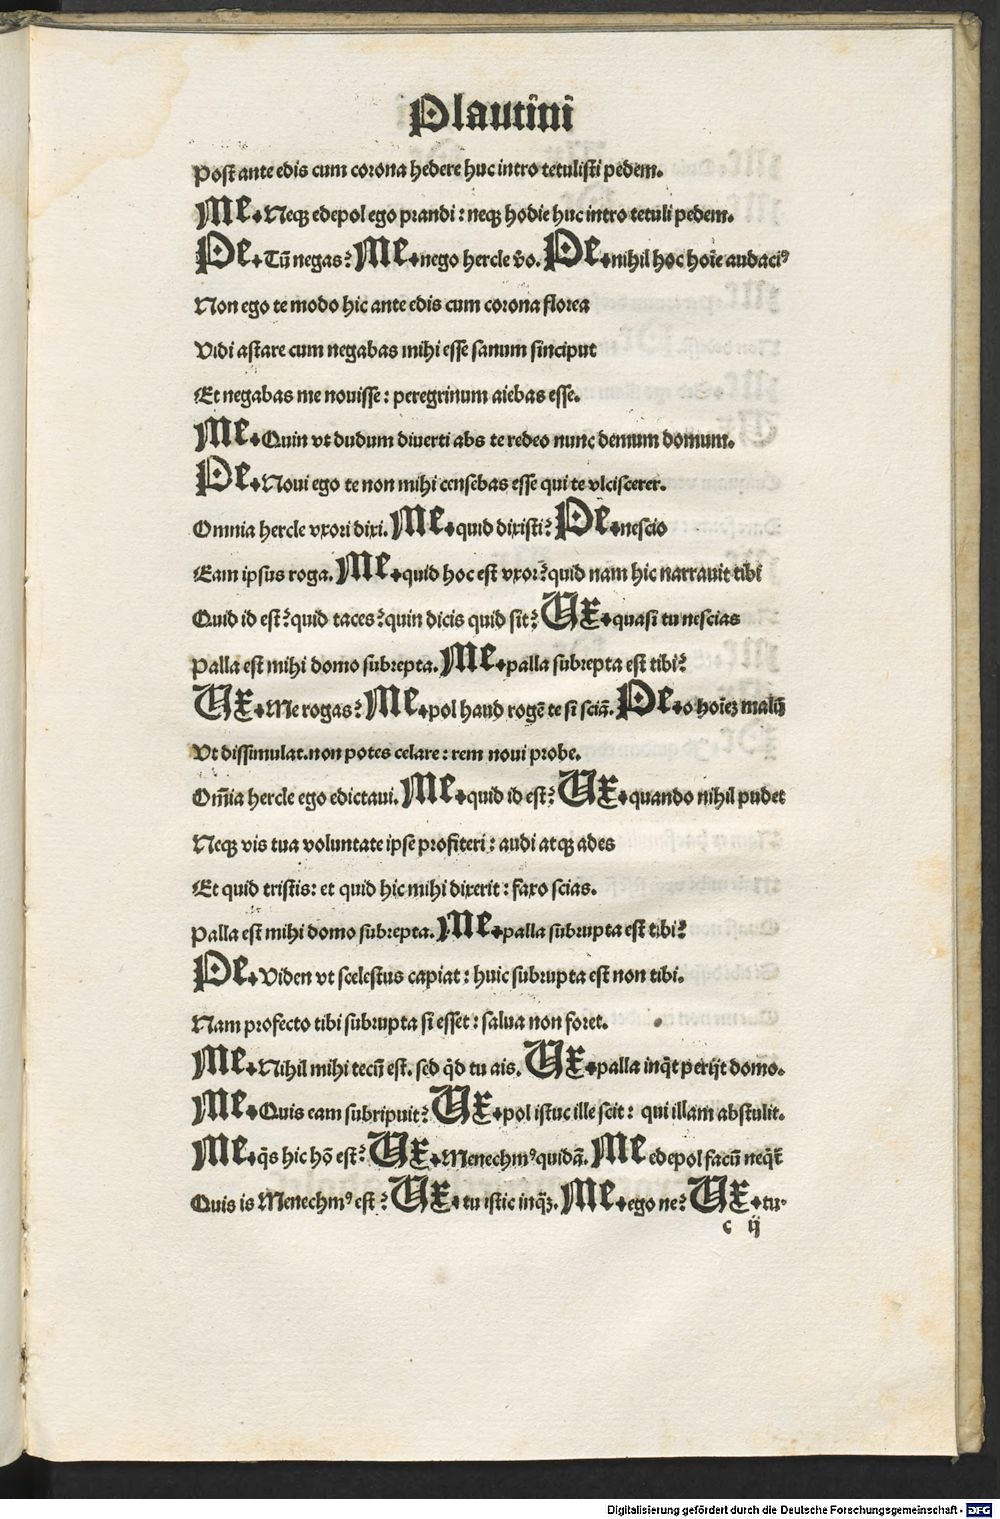 Plautini
Post ante edis cum corona hedere huc intro tetulisti pedem.
Me. Neqꝫ edepol ego prandi: neqꝫ hodie huc intro tetuli pedem.
Pe. Tũ negas? Me. nego hercle ṽo. Pe. nihil hoc hoĩe audaciꝰ
Non ego te modo hic ante edis cum corona florea
Vidi astare cum negabas mihi esse sanum sinciput
Et negabas me nouisse: peregrinum aiebas esse.
Me. Quin vt dudum diuerti abs te redeo nunc demum domum.
Pe. Noui ego te non mihi censebas esse qui te vlciscerer.
Omnia hercle vxori dixi. Me. quid dixisti? Pe. nescio
Eam ipsus roga. Me. quid hoc est vxor? quid nam hic narrauit tibi
Quid id est? quid taces? quin dicis quid sit? Ux. quasi tu nescias
Palla est mihi domo subrepta. Me. palla subrepta est tibi?
Ux. Me rogas? Me. pol haud rogẽ te si sciã. Pe. o hoĩeꝫ malũ
Vt dissimulat. non potes celare: rem noui probe.
Om̃ia hercle ego edictaui. Me. quid id est? Ux. quando nihil pudet
Neqꝫ vis tua voluntate ipse profiteri: audi atqꝫ ades
Et quid tristis: et quid hic mihi dixerit: faxo scias.
Palla est mihi domo subrepta. Me. palla subrupta est tibi?
Pe. Viden vt scelestus capiat: huic subrupta est non tibi.
Nam profecto tibi subrupta si esset: salua non foret.
Me. Nihil mihi tecũ est. sed q̃d tu ais. Ux. palla inq̃t perijt domo.
Me. Quis eam subripuit? Ux. pol istuc ille scit: qui illam abstulit.
Me. q̃s hic hõ est? Ux. Menechmꝰ quidã. Me edepol facũ neq̃t
Quis is Menechmꝰ est? Ux. tu istic inq̃ꝫ. Me. ego ne? Ux. tu.
c ij
Digitalisierung gefördert durch die Deutsche Forschungsgemeinschaft - DFG